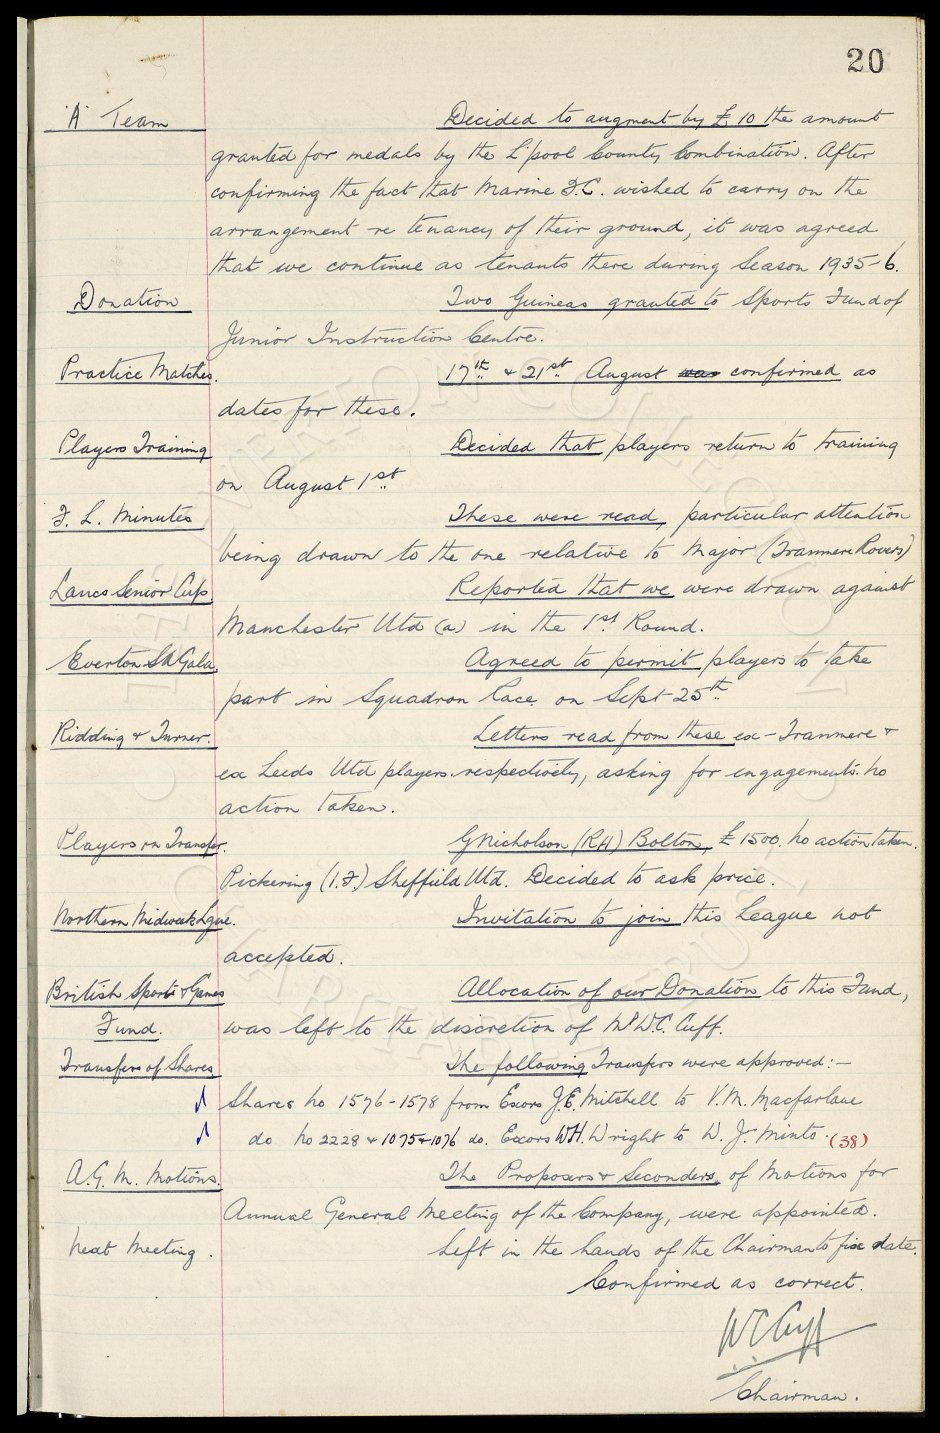 20
'A' Team Decided to augment by £10 the amount
granted for medals by the L'pool County Combination. After
confirming the fact that Marine F.C. wished to carry on the
arrangement re tenancy of their ground, it was agreed
that we continue as tenants there during Season 1935-6.
Donation Two Guineas granted to Sports Fund of
Junior Instruction Centre.
Practice Matches. 17th & 21st August was confirmed as
dates for these.
Players Training Decided that players return to training
on August 1st
F. L. Minutes These were read, particular attention
being drawn to the one relative to Major (Tranmere Rovers)
Lancs Senior Cup Reported that we were drawn against
Manchester Utd (a) in the 1st Round.
Everton Gala Agreed to permit players to take
part in Squadron Race on Sept 25th.
Ridding & Turner. Letters read from these ex-Tranmere &
ex Leeds Utd players respectively, asking for engagements. No
action taken.
Players on Transfer. G Nicholson (RH) Bolton, £1500. No action taken.
Pickering (I.F.) Sheffield Utd. Decided to ask price.
Northern Midweek Lgue. Invitation to join this League not
accepted.
British Sports & Games Allocation of our Donation to this Fund,
Fund. was left to the discretion of Mr W.C. Cuff.
Transfers of Shares The following Transfers were approved:-
Shares No 1576-1578 from Excors J.E. Mitchell to V.M. Macfarlane
do No 2228 & 1075 & 1076 do. Excors W.H. Wright to W. J. Minto. (38)
A.G.M. Motions. The Proposers & Seconders, of Motions for
Annual General Meeting of the Company, were appointed.
Next Meeting. Left in the hands of the Chairman to fix date.
Confirmed as correct.
WC Cuff
Chairman.